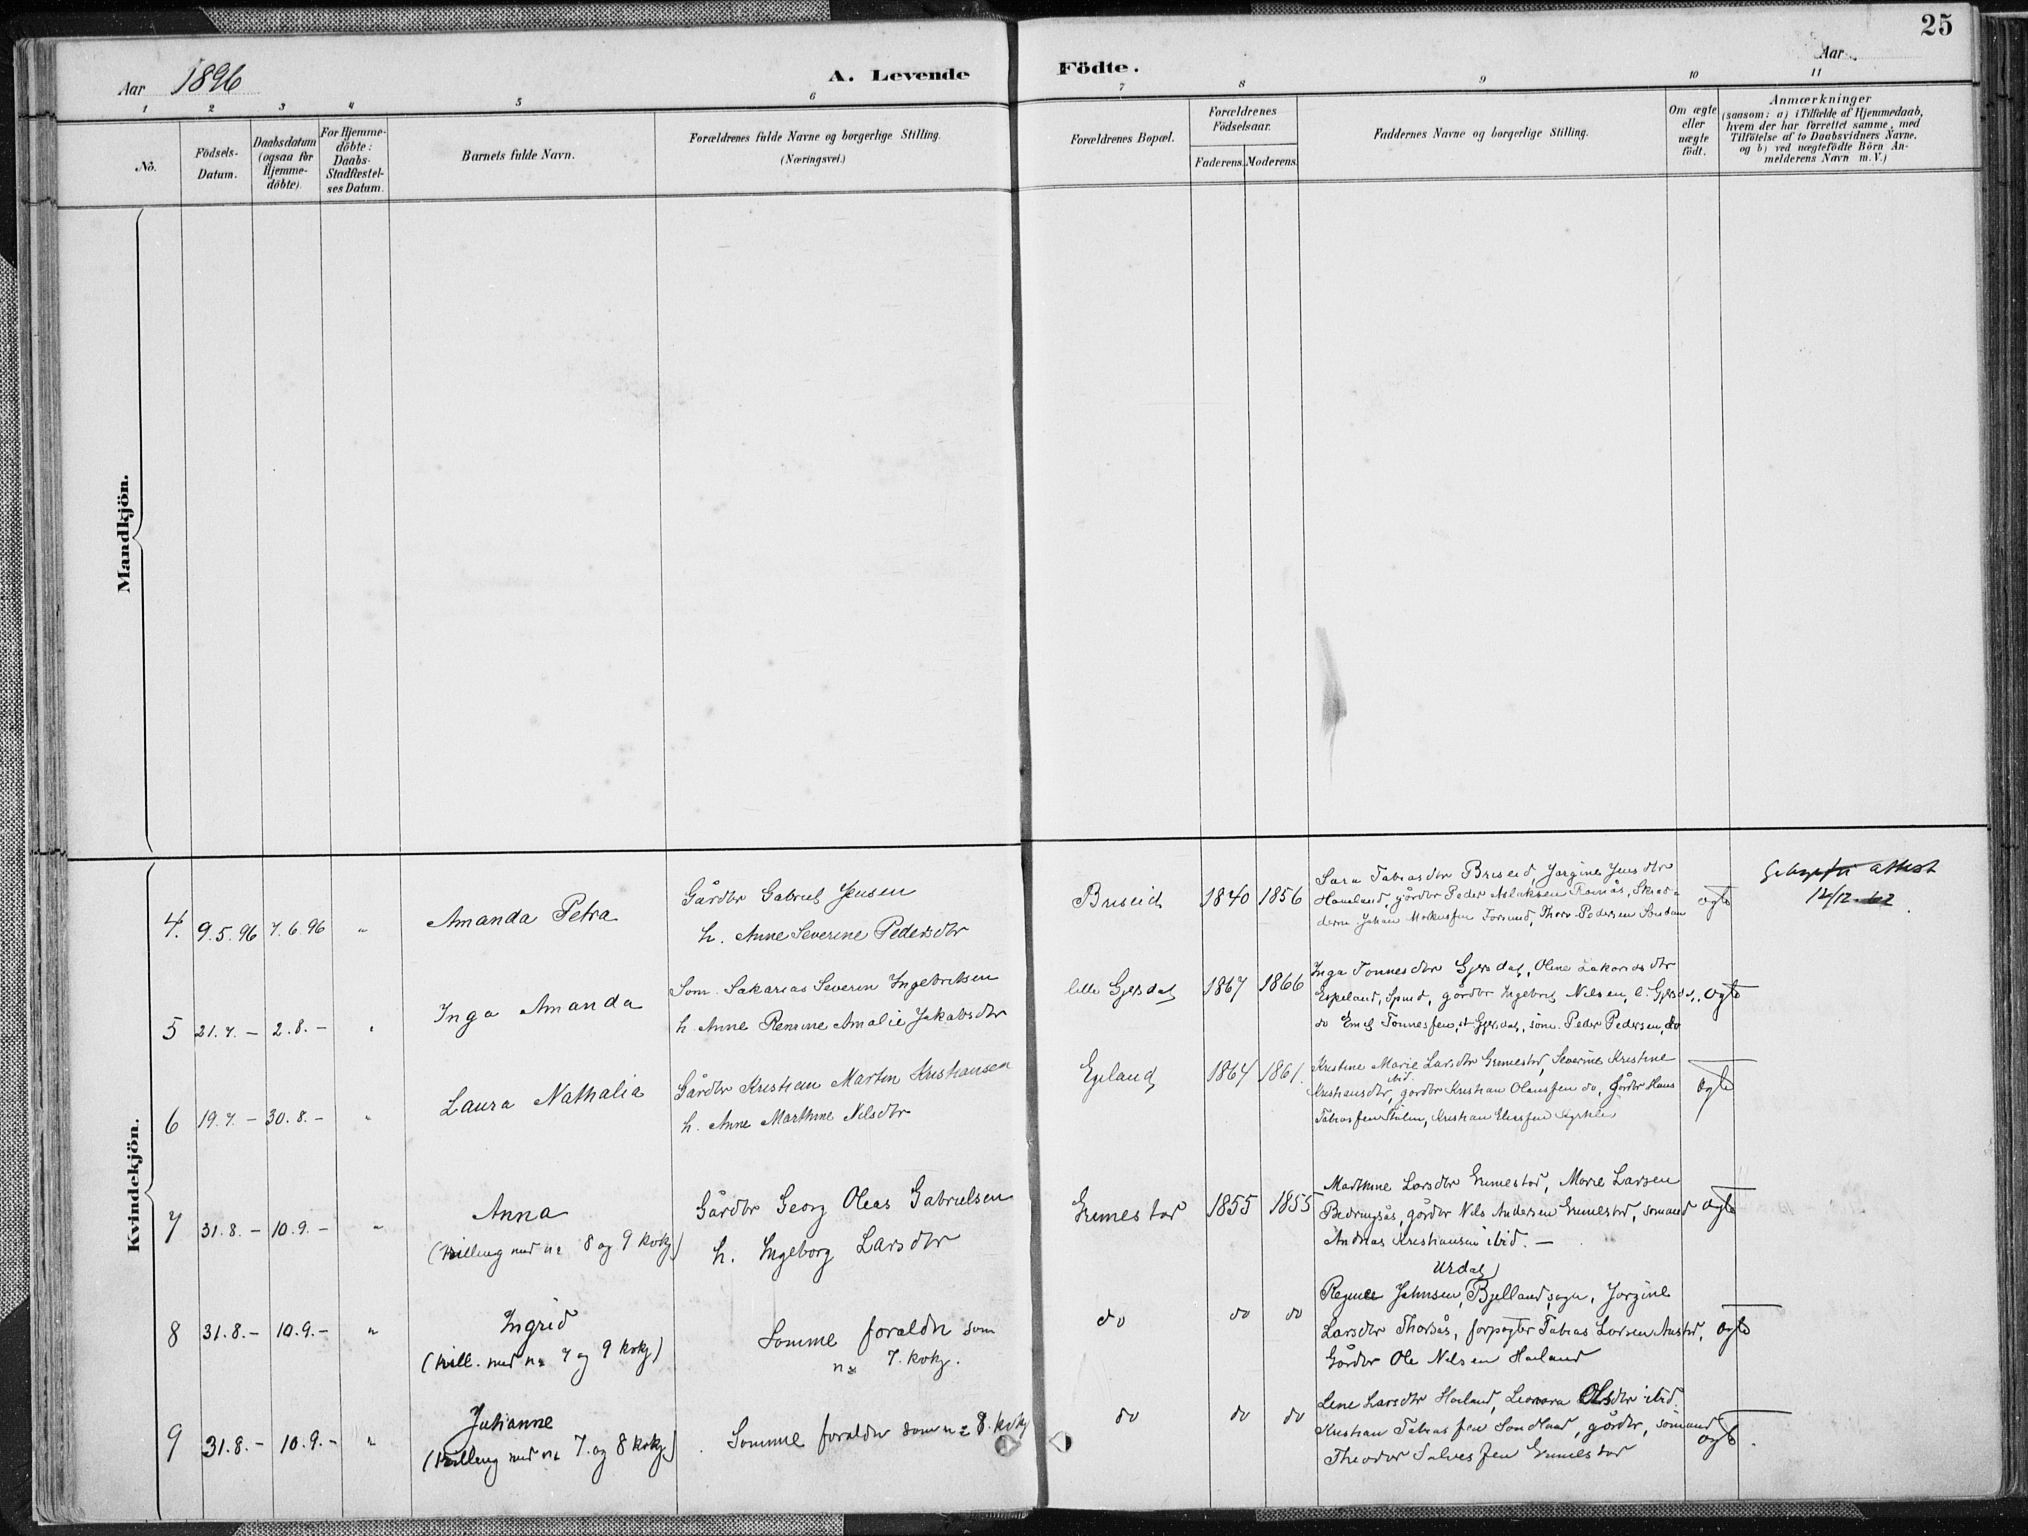 25
Aar 1896
A. Levende Födte.
Aar
1 2 3 4 5 6 7 8 9 10 11
No.
Födsels-
Datum.
Daabsdatum
(ogsaa för
Hjemme-
döbte).
For Hjemme-
döbte:
Daabs-
Stadfæstel-
ses Datum.
Barnets fulde Navn.
Forældrenes fulde Navne og borgerlige Stilling.
(Næringsvei.)
Forældrenes Bopæl.
Forældrenes
Födselsaar.
Faderens. Moderens.
Faddernes Navne og borgerlige Stilling.
Om ægte
eller
uægte
födt.
Anmærkninger
(saasom: a) i Tilfælde af Hjemmedaab,
hvem der har forrettet samme, med
Tilföielse af to Daabsvidners Navne,
og b) ved uægtefödte Börn An-
melderens Navn m. V.)
Mandkjön.
Kvindekjön.
4. 9.5.96 7.6.96 "
Amanda Petra
Gårdbr Gabriel Jensen
h. Anne Severine Pedersdtr
Briseid 1840 1856
Sara Tobiasdtr Briseid, Jorgine Jensdtr
Haueland, gårdbr Peder Aslaksen
ægte
attest
12/12-62
5 21.7.- 2.8.- "
Inga Amanda
Søm. Sakarias Severin Ingebretsen
h. Anne Remine Amalie Jakobsdtr
lille Gjersdal 1867 1866
Inga Tonnesdtr Gjersdal, Oline Zakariasdtr
Espeland, Spind, gårdbr Ingebret Nilsen, l. Gjersdal,
do Emil Tonnessen, st. Gjersdal, søm. Peder Pedersen, do
ægte
6 19.7.- 30.8.- "
Laura Nathalia
Gårdbr Kristian Martin Kristiansen
h. Anne Marthine Nilsdtr
Egeland 1864 1861.
Kristine Marie Larsdtr Grimestad, Severine Kristine
ibid.
Kristiansdtr, gårdbr Kristian Olaussen do, gårdbr Hans
Tobiassen Stulen, Kristian Eliassen
ægte
7 31.8.- 10.9.- "
Anna
(trilling med no 8 og 9 kvkj)
Gårdbr Georg Oleas Gabrielsen
h. Ingeborg Larsdtr
Grimestad 1855 1855
Marthine Larsdtr Grimestad, Marie Larsen
Bedringsås, gårdbr Nils Andersen Grimestad, sømand
Andreas Kristiansen ibid. —
ægte
8 31.8.- 10.9.- "
Ingrid
(trill. med no 7 og 9 kvkj)
Samme forældre som
no 7. kvkj.
do do do
Urdal
Johnsen, Bjelland sogn, Jorgine
Larsdtr Thorsås, forpagter Tobias Larsen
Gårdbr Ole Nilsen Høiland
ægte
9 31.8.- 10.9.- "
Julianne
(trilling med no 7. og 8 kvkj)
Samme forældre som no 8. kvkj
do do do
Lene Larsdtr Høiland, Leonora Olsdtr ibid.
Kristian Tobiassen, gårdbr, sømand
Theodor Salvessen Grimestad
ægte.